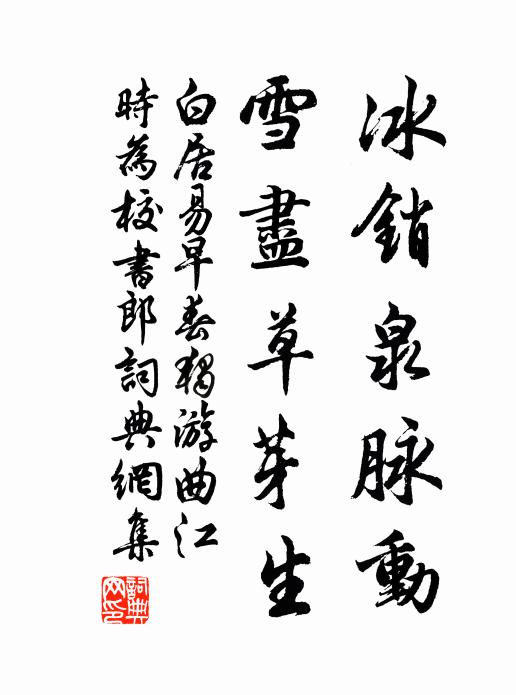 冰銷泉脉動
雪盡草芽生
白居易早春独游曲江
時為校書郎詞典網集
詞典网印